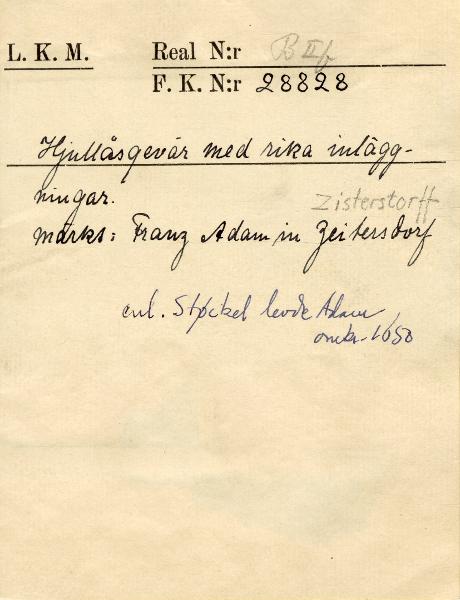 L. K. M. Real N:r B IIf
F. K. N:r 28828
Hjullåsgevär med rika inlägg-
ningar.
Zisterstorff
märkt: Franz Adam in Zeitersdorf
enl. Støckel levde Adam
omkr. 1650